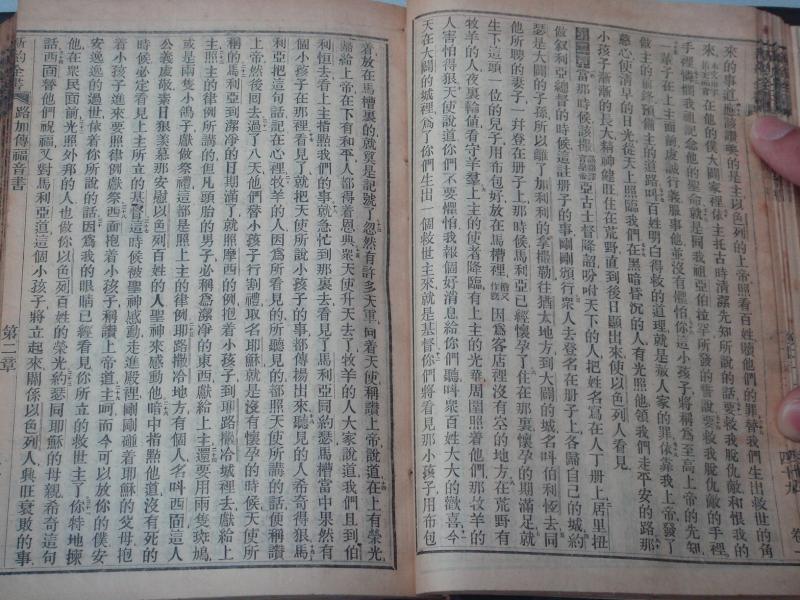 來的事道應該讚美的是主以色列的上帝照看百姓贖他們的罪替我們生出救世的角
在他的僕大闢家裡依主托古時清潔先知所說的話要救我脫仇敵和恨我的
手裡憐憫我祖記念他的聖命就是同我祖亞伯拉罕所發的誓說要救我脫仇敵的手裡
一輩子在上主面前虔誠行義服事他並沒有懼怕你這小孩子將稱爲至高上帝的先知
做主的前驅預備主的道路呌百姓明白得救的道理就是赦人家的罪依靠我上帝發了
慈心使清早的日光從天上照臨我們在黑暗沉的人有光照他領我們走平安的路那
小孩子漸漸的長大精神健旺住在荒野直到後日顯出來使以色列人看見
當那時候該撒亞古士督降詔吩咐天下的人把姓名寫在人丁册上居里扭
做叙利亞總督的時候這註册子的事剛剛頭行衆人去登名在册子上各歸自己的城約
瑟是大闢的子孫所以離了加利利的拿撒勒往猶太地方到大闢的城名呌伯利恆去同
他所聘的妻子一幷登在册子上那時候馬利亞已經懷孕了住在那裏懷孕的期滿足就
生下這頭一位的兒子用布包好放在馬槽裡因爲客店裡沒有空的地方在荒野有
牧羊的人夜裏輪値看守羊羣上主的使者降臨有上主的光華周圍照着他們那牧羊的
人害怕得狠天使說道你們不要懼怕我報個好消息給你們聽呌衆百姓大大的歡喜今
天在大闢的城裡爲了你們生出一個救世主來就是基督你們將看見那小孩子用布包
着放在馬槽裏的就算是記號了忽然有許多天軍同着天使稱讚上帝說道在上有榮光
歸給上帝在下有和平人都得着恩典衆天使升天去了牧羊的人大家說道我們且到伯
利恒去看看上主指點我們的事就急忙到那裏去看見了馬利亞同約瑟馬槽當中果然有
個小孩子在那裡看見了就把天使所說小孩子的事都傳揚出來聽見的人希奇得狠馬
利亞把這句話記在心裡牧羊的人因爲所看見的所聽見的都照天使所講的話便稱讚
上帝然後回去過了八天他們替小孩子行割禮取名耶穌就是沒有懷孕的時候天使所
稱的馬利亞到潔淨的日期滿了就照摩西的例抱着小孩子到耶路撒冷城裡去獻給上
主照上主的律例所講的但凡頭胎的男子必稱爲潔淨的東西獻給上主還要用兩隻斑鳩
或是兩隻小鴿子獻做祭禮這都是照上主的律例耶路撒冷地方有個人名呌西面這人
公義虔敬素日狠羨慕那安慰以色列百姓的人聖神來感動他暗中指點他道沒有死的
時候必定看見上主所立的基督這時候被聖神感動走進殿裡剛剛碰着耶穌的父母抱
着小孩子進來要照律例獻祭西面抱着小孩子稱讚上帝道主呵而今可以放你的僕安
安逸逸的過世依着你所說的話因爲我的眼睛已經看見你所立的救世主了你特地揀
他在衆民面前光照外邦的人也做你以色列百姓的榮光約瑟同耶穌的母親希奇這句
話西面替他們祝福又對馬利亞道這個小孩子將立起來關係以色列人興旺衰敗的事
新約全書
路加傳福音書
第二章